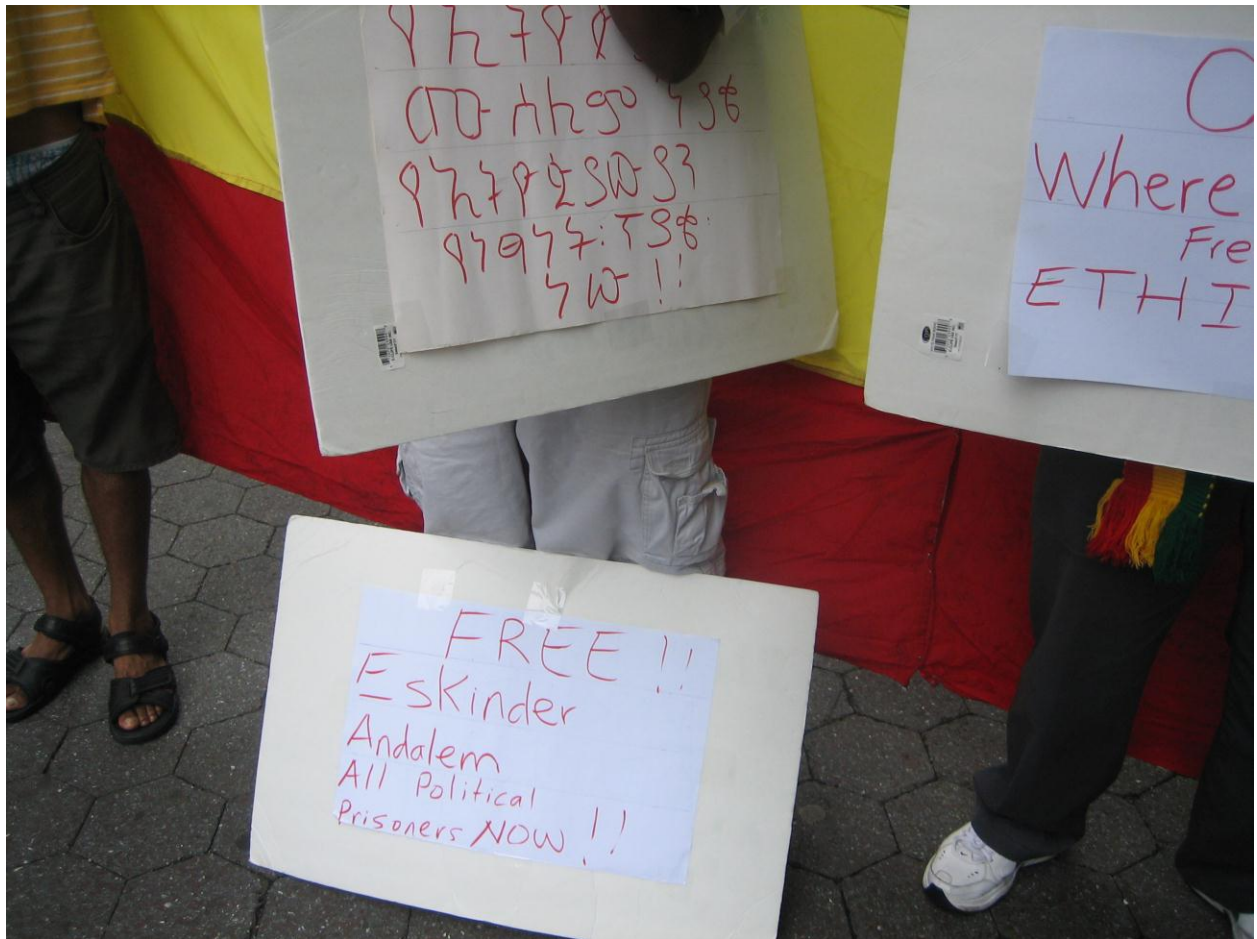 ጥያቄ
የኢትዮጵያውያን
የነፃነት: ጥያቄ:
ነው !!
Where
Fre
ETHI
FREE !!
Eskinder
Andalem
All Political
Prisoners NOW !!